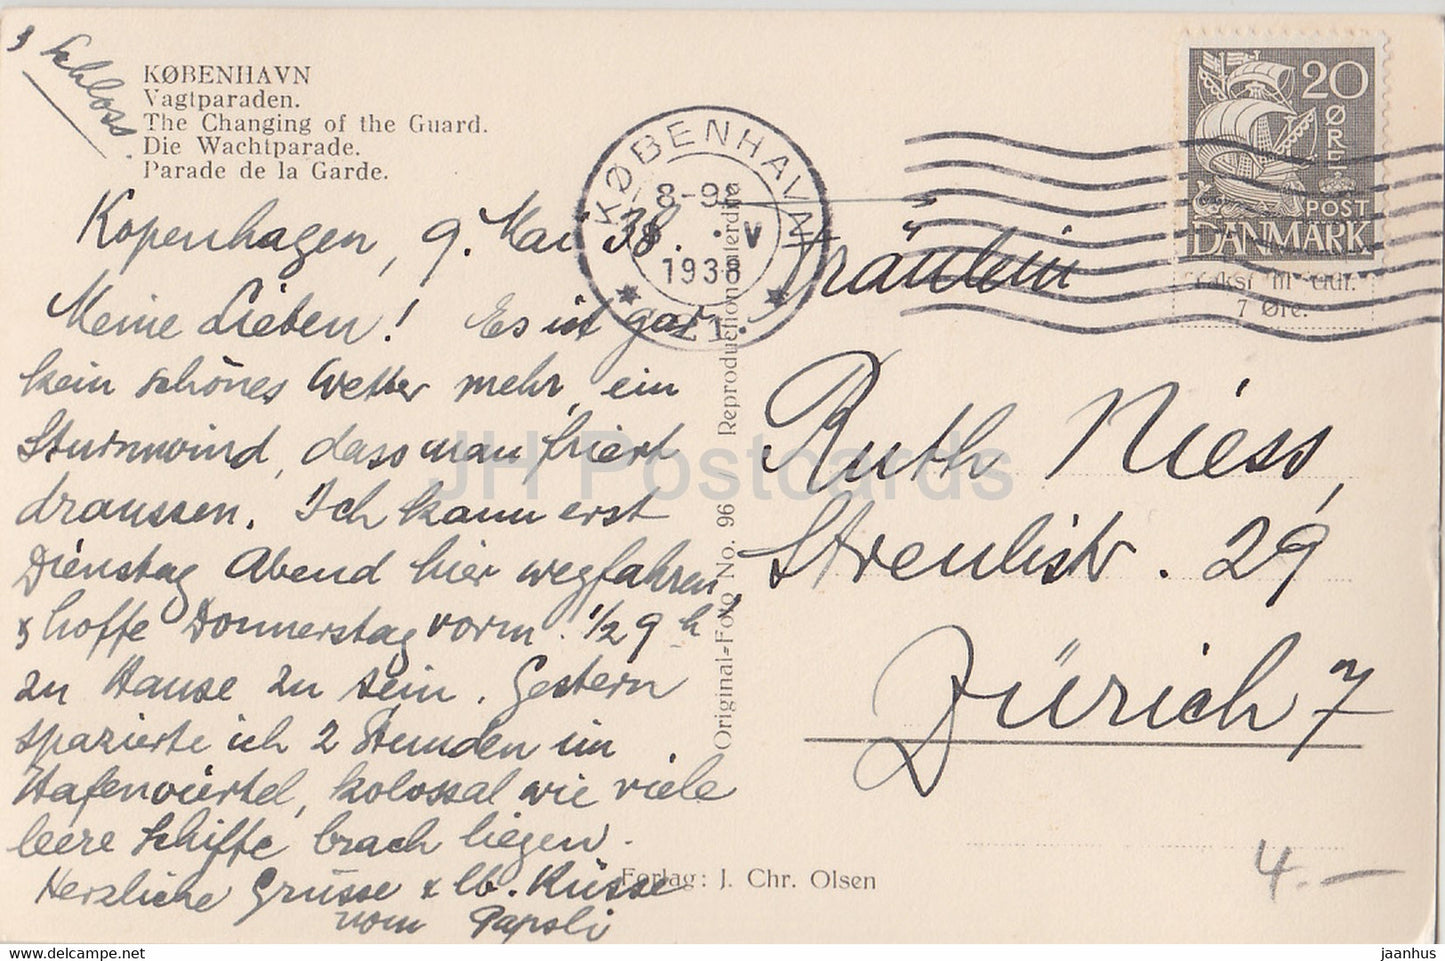 & Schloss.
KØBENHAVN
Vagtparaden.
The Changing of the Guard.
Die Wachtparade.
Parade de la Garde.
Kopenhagen, 9. Mai 38.
Meine Lieben! Es ist gar
kein schönes Wetter mehr, ein
Sturmwind, dass man friert
draussen. Ich kann erst
Dienstag Abend hier wegfahren,
& hoffe Donnerstag vorm. 1/2 9 h
zu Hause zu sein. Gestern
spazierte ich 2 Stunden im
Hafenviertel, kolossal wie viele
leere Schiffe brach liegen.
Herzliche Grüsse & lb. Küsse
vom Papsli
Original-Foto No. 96 / Reproduction interdite
Forlag: J. Chr. Olsen
KØBENHAVN
8-9
V
1938
* 21. *
20
ØRE
POST
DANMARK
7 Øre.
Fräulein
Ruth Niess,
Streulistr. 29
Zürich 7
4.—
JH Postcards
HIP POSTCARD.com
jaanhus